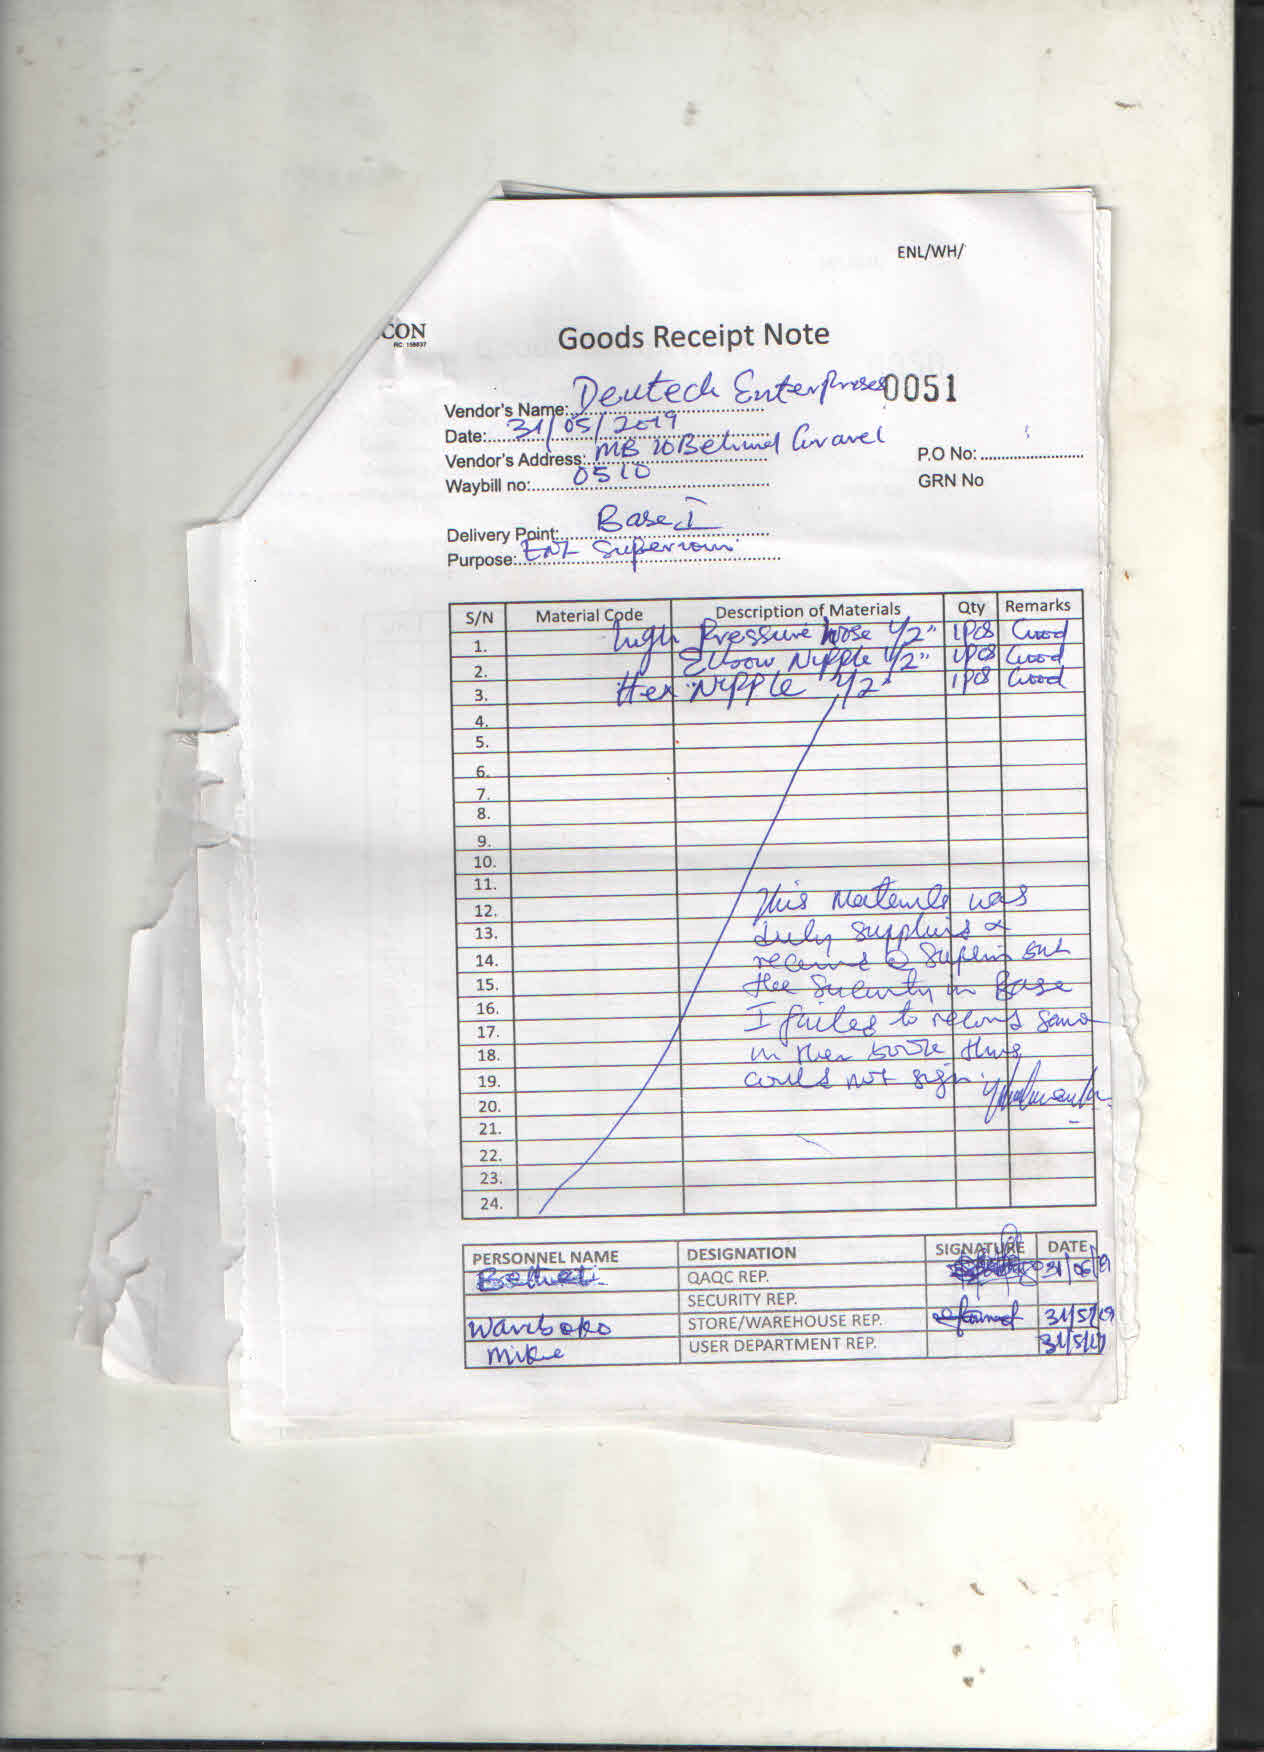 ENL/WH/
CON
RC: 156837
Goods Receipt Note
0051
Vendor's Name: Deutech Enterprises
Date: 31/05/2019
Vendor's Address: MB 10 Behind Gravel
P.O No:
Waybill no: 0510
GRN No
Delivery Point: Base I
Purpose: ENL
S/N Material Code Description of Materials Qty Remarks
1. high Pressure hose 1/2" 1Pcs Good
2. Elbow Nipple 1/2" 1Pcs Good
3. Hex Nipple 1/2" 1Pcs Good
4.
5.
6.
7.
8.
9.
10.
11.
12. This Materials was
13. duly supplied &
14. received @
15. the Security in Base
16.
17. I failed to record same
18. in their book, thus
19. could not sign.
20.
21.
22.
23.
24.
PERSONNEL NAME DESIGNATION SIGNATURE DATE
QAQC REP. 31/06/19
SECURITY REP.
Wariboko STORE/WAREHOUSE REP. 31/5/19
Mike USER DEPARTMENT REP. 31/5/19